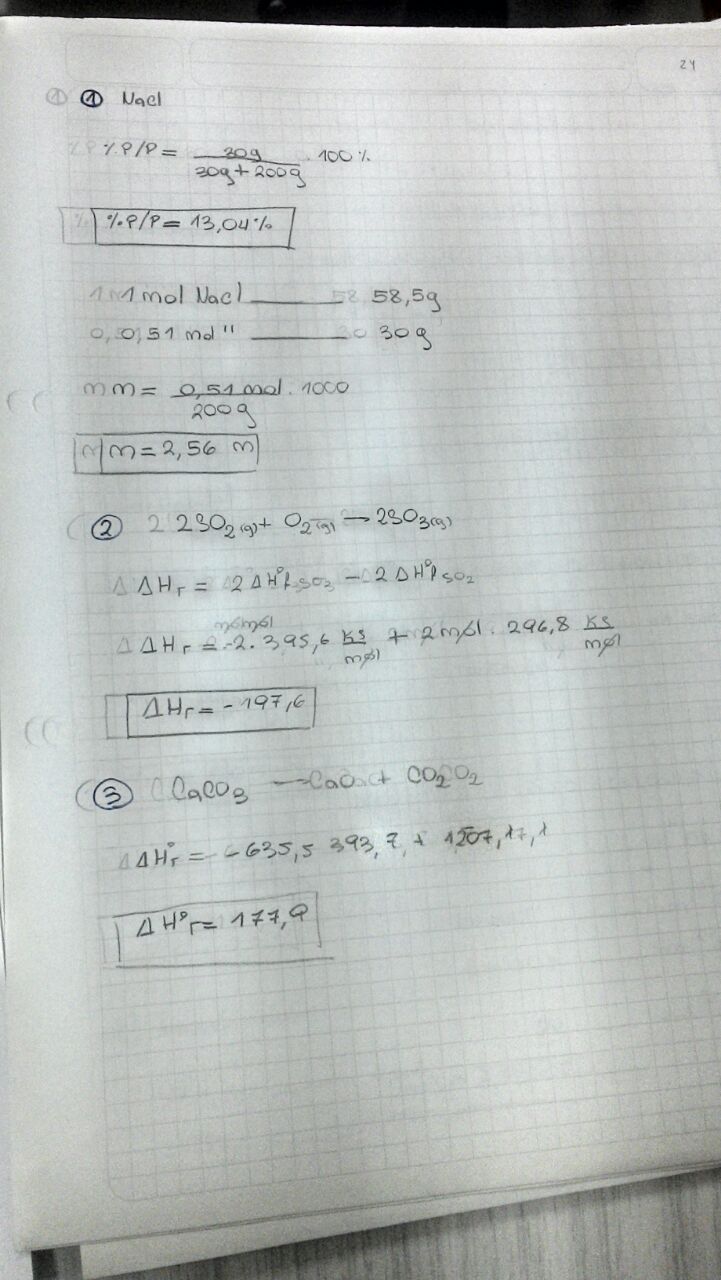 24
① NaCl
%P/P = 30g / 30g + 200g . 100%
%P/P = 13,04%
1 mol NaCl ——— 58,5g
0,51 mol " ——— 30g
m = 0,51 mol . 1000 / 200g
m = 2,56 m
② 2SO2(g) + O2(g) → 2SO3(g)
ΔHr = 2ΔH°f SO3 - 2ΔH°f SO2
ΔHr = -2 mol . 395,6 KJ/mol + 2 mol . 296,8 KJ/mol
ΔHr = -197,6
③ CaCO3 → CaO + CO2
ΔH°r = -635,5 393,7 + 1207,1
ΔH°r = 177,9